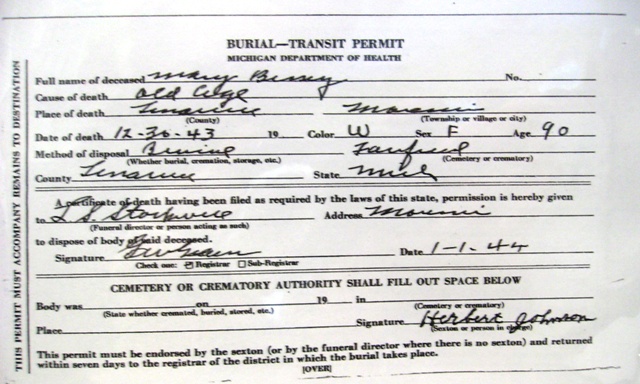 BURIAL—TRANSIT PERMIT
MICHIGAN DEPARTMENT OF HEALTH
Full name of deceased Mary Bessey No.
Cause of death Old Age
Place of death Lenawee Morenci
(County) (Township or village or city)
Date of death 12-30-43 19 Color W Sex F Age 90
Method of disposal Burial
(Whether burial, cremation, storage, etc.) (Cemetery or crematory)
County Lenawee State Mich
A certificate of death having been filed as required by the laws of this state, permission is hereby given
to L S Stockwell Address Morenci
(Funeral director or person acting as such)
to dispose of body of said deceased.
Signature Date 1-1-44
Check one: Registrar Sub-Registrar
CEMETERY OR CREMATORY AUTHORITY SHALL FILL OUT SPACE BELOW
Body was on 19 in
(State whether cremated, buried, stored, etc.) (Cemetery or crematory)
Place Signature Herbert Johnson
(Sexton or person in charge)
This permit must be endorsed by the sexton (or by the funeral director where there is no sexton) and returned
within seven days to the registrar of the district in which the burial takes place.
[OVER]
THIS PERMIT MUST ACCOMPANY REMAINS TO DESTINATION